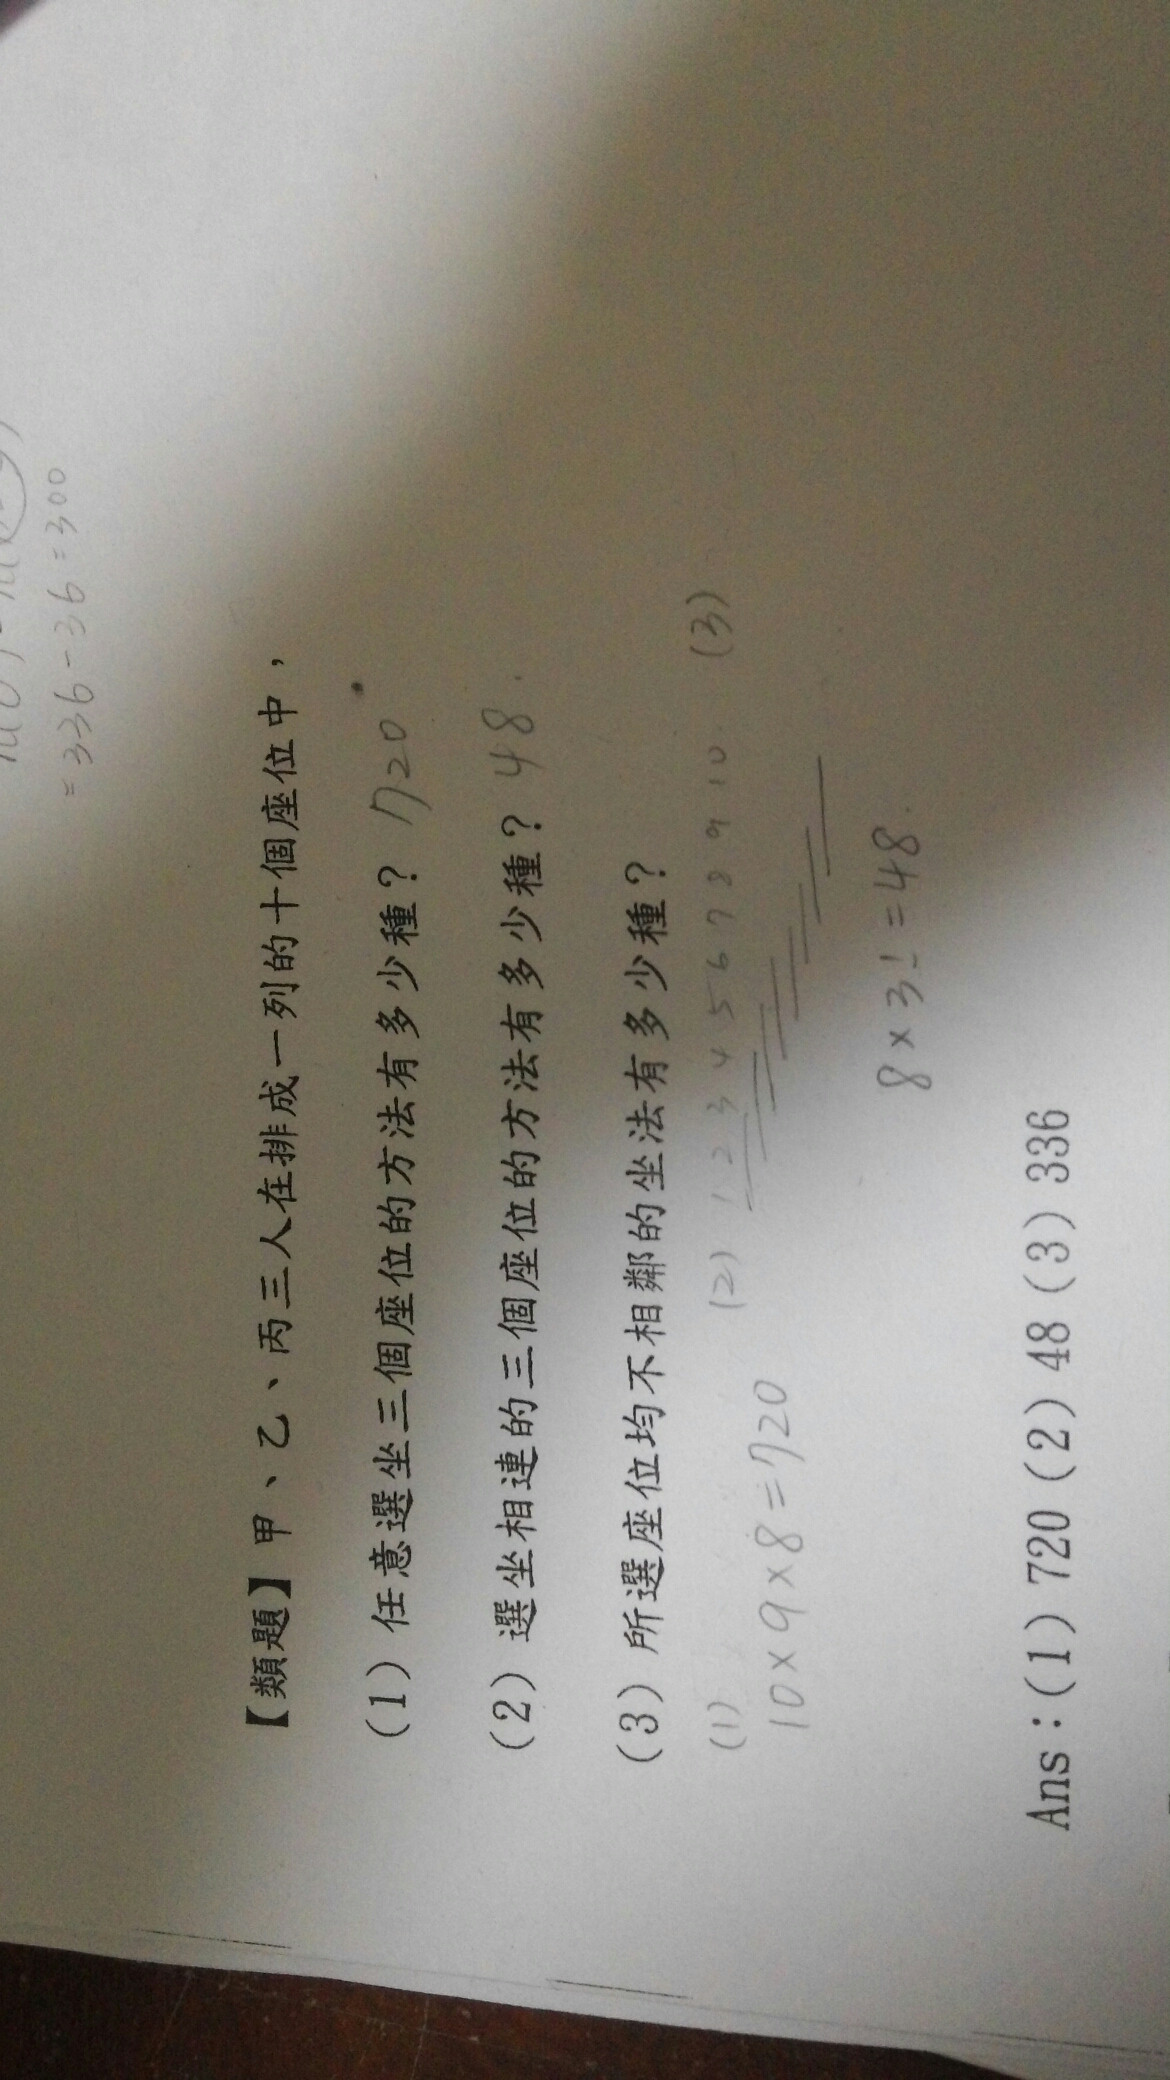 = 336 - 36 = 300
【類題】甲、乙、丙三人在排成一列的十個座位中，
(1) 任意選坐三個座位的方法有多少種？ 720
(2) 選坐相連的三個座位的方法有多少種？ 48.
(3) 所選座位均不相鄰的坐法有多少種？
(1)
10×9×8=720
(2) 1 2 3 4 5 6 7 8 9 10.
8×3!=48.
(3)
Ans：(1) 720 (2) 48 (3) 336